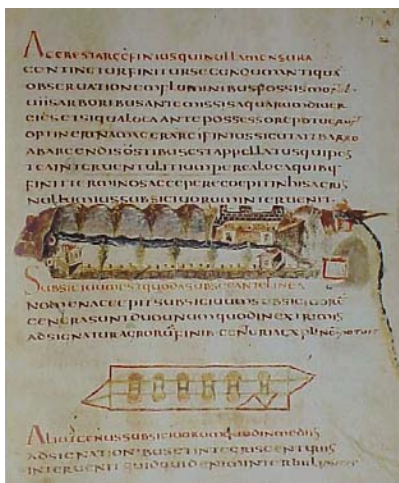 AGER EST ARCEFINIUS QUI NULLA MENSURA
CONTINETUR FINITUR SECUNDUM ANTIQUĀ
OBSERVATIONEM FLUMINIBUS FOSSIS MONT
UIIS ARBORIBUS ANTE MISSIS AQUARUM DIVER
ET SI QUA LOCA ANTE POSSESSORE POTUER
OPTINERI NAM AGER ARCIFINIUS SICUT AIT BARRO
AB ARCENDIS OSTIBUS EST APPELLATUS QUI POS
TEA INTERVENTU LITIUM PER EA LOCA QUIBUS
FINIT TERMINOS ACCEPERE COEPIT IN HIS AGRIS
NULLUM IUS SUBSICIUORUM INTERVENIT
SUBSICIUUM EST QUOD A SUBSECANTE LINEA
NOMEN ACCEPIT SUBSICIUUM SUBSICIUORŪ
GENERA SUNT DUO UNUM QUOD IN EXTREMIS
ADSIGNATUR AGRORŪ FINIB CENTURIA EXPLERI NON
ALIUD GENUS SUBSICIUORUM QUOD IN MEDIIS
ADSIGNATIONIBUS ET INTEGRIS CENTURIIS
INTERVENIT QUIDQUID ENIM INTER